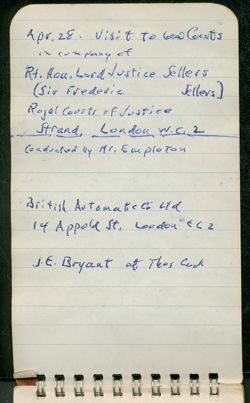 Apr. 28. Visit to Law Courts
in company of
Rt. Hon. Lord Justice Sellers
(Sir Frederic Sellers)
Royal Courts of Justice
Strand, London W.C.2
Conducted by Mr. Empleton
British Automatic Co Ltd
14 Appold St. London EC2
J.E. Bryant of Thos Cook